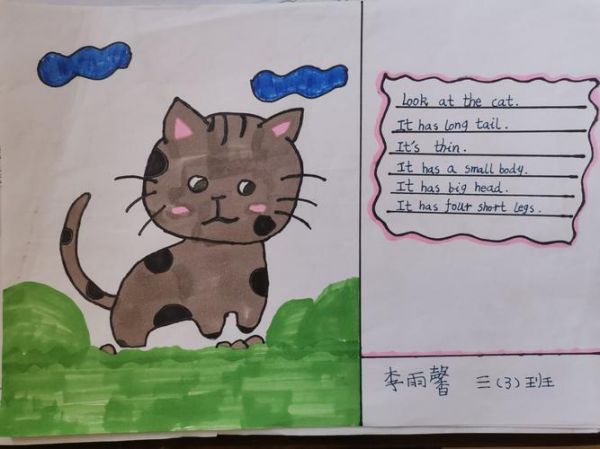 Look at the cat.
It has long tail.
It's thin.
It has a small body.
It has big head.
It has four short legs.
李雨馨 三(3)班